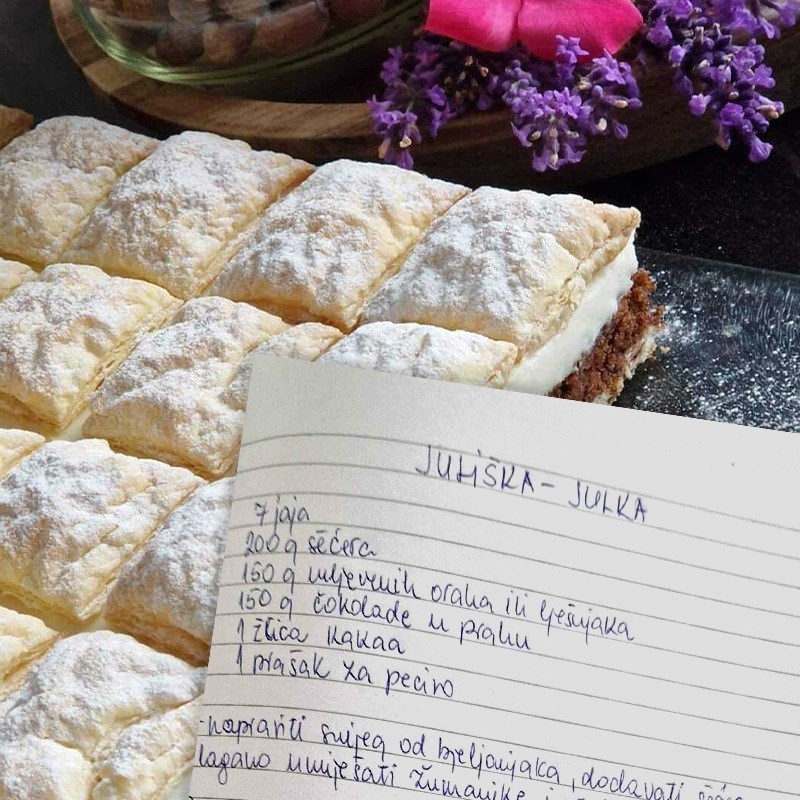 JULIŠKA - JULKA
7 jaja
200 g šećera
150 g mljevenih oraha ili lješnjaka
150 g čokolade u prahu
1 žlica kakaa
1 prašak za pecivo
-napraviti snijeg od bjeljanjaka, dodavati
lagano umiješati žumanjke i